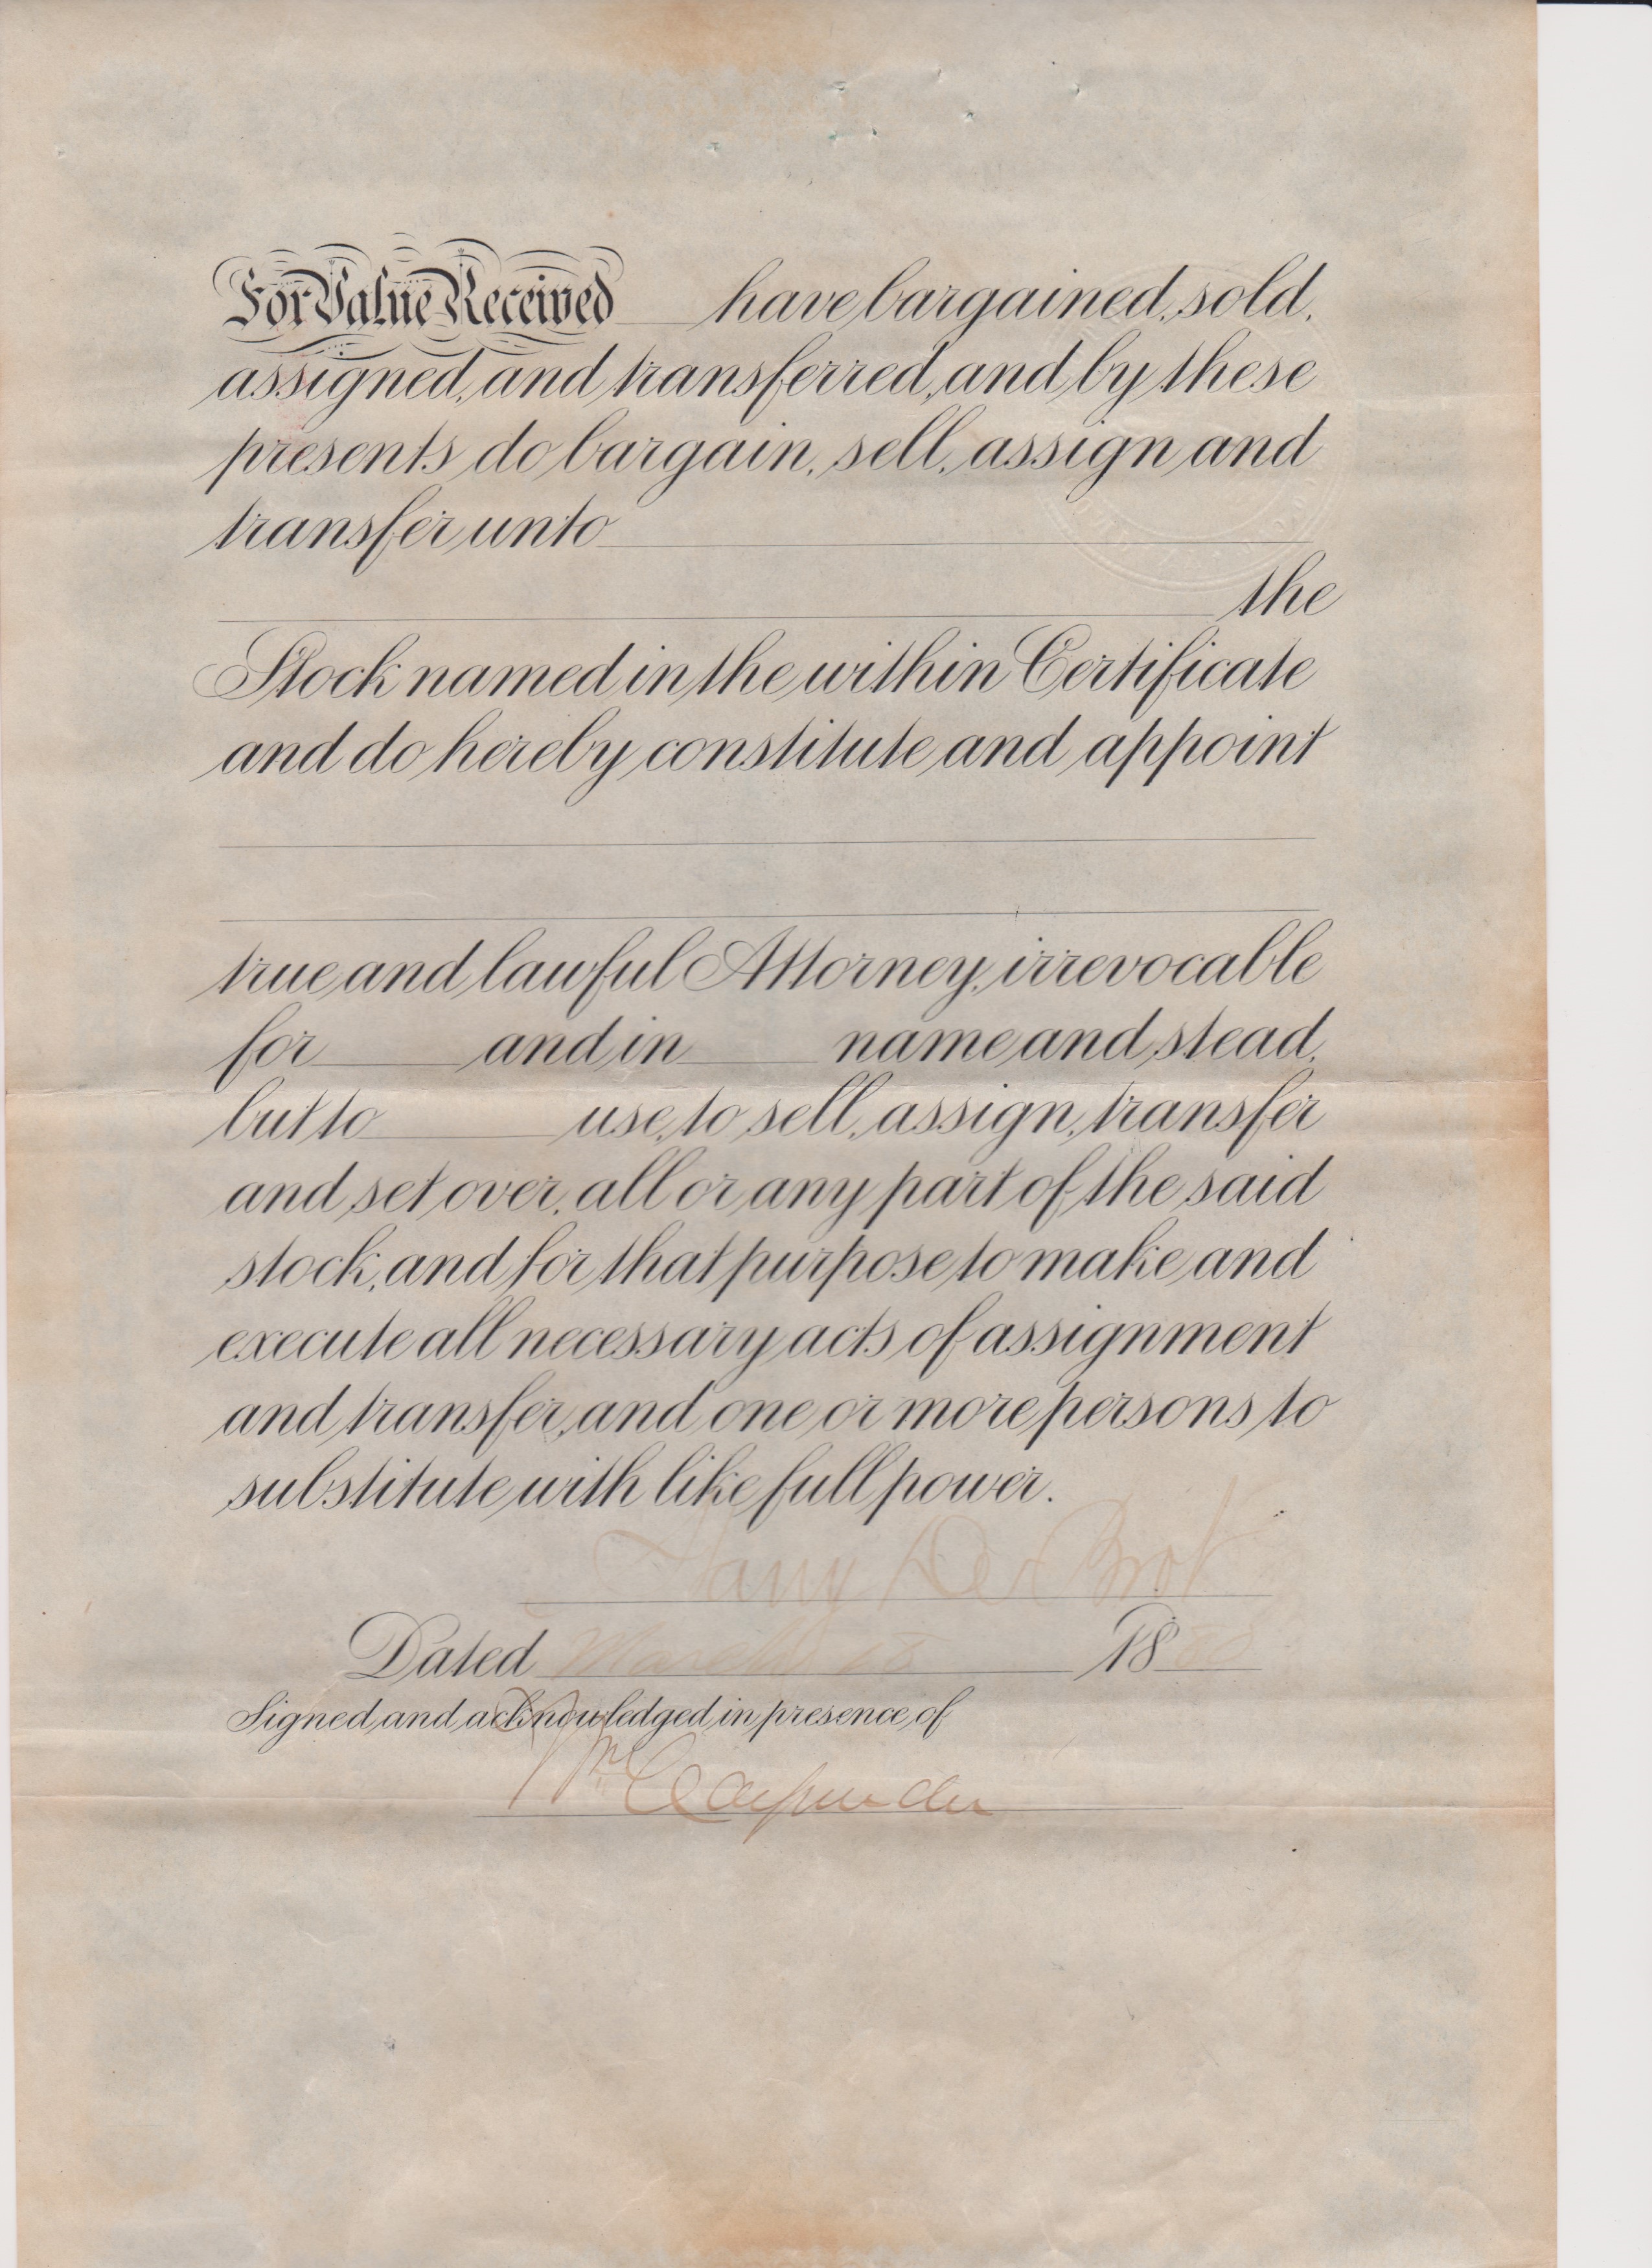 For Value Received have bargained, sold,
assigned, and transferred, and by these
presents do bargain, sell, assign and
transfer unto
the
Stock named in the within Certificate
and do hereby constitute and appoint
true and lawful Attorney, irrevocable
for and in name and stead,
but to use, to sell, assign, transfer
and set over, all or any part of the said
stock, and for that purpose to make and
execute all necessary acts of assignment
and transfer, and one or more persons to
substitute with like full power.
Harry
Dated March 18
Signed and acknowledged in presence of
Wm Carpender